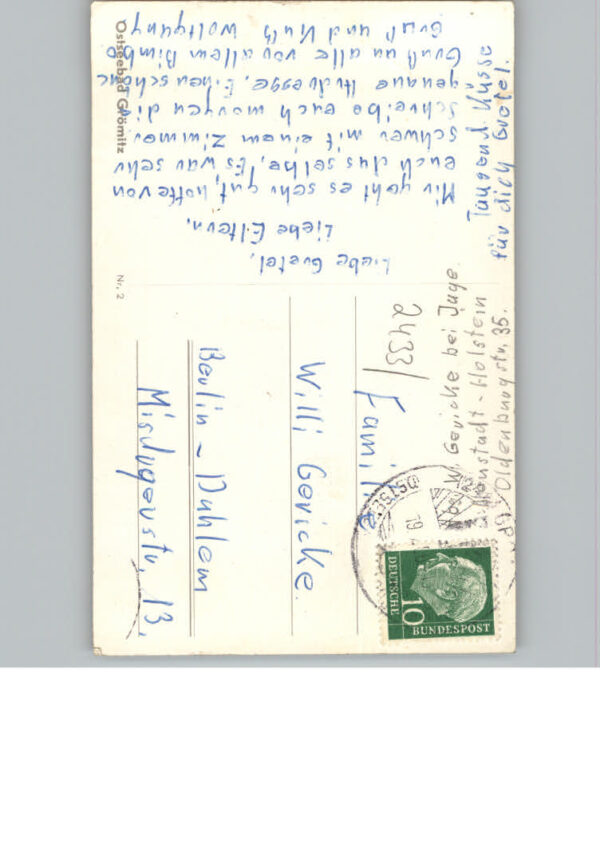 Liebe Gretel,
Liebe Eltern,
Mir geht es sehr gut, hoffe von
euch das selbe. Es war sehr
schwer mit einem Zimmer.
Schreibe euch morgen die
genaue Adresse. Einen schönen
Gruß an alle vor allem Bimbo
Gruß und Kuß Wolfgang
Tausend Küsse
für dich Gretel.
Ostseebad Grömitz
Nr. 2
2433
Familie
Willi Gericke
Berlin - Dahlem
Misdroyerstr. 13.
Abs. W. Gericke bei Juge
Neustadt - Holstein
Oldenburgstr. 35.
OSTSEE
19
10
DEUTSCHE
BUNDESPOST